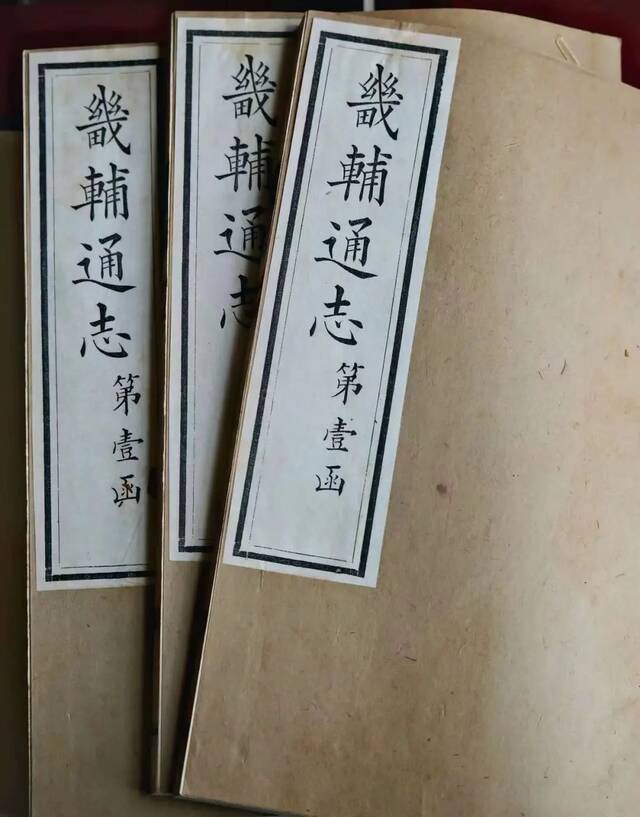 畿輔通志
第壹函
畿輔通志
畿輔通志
第壹函